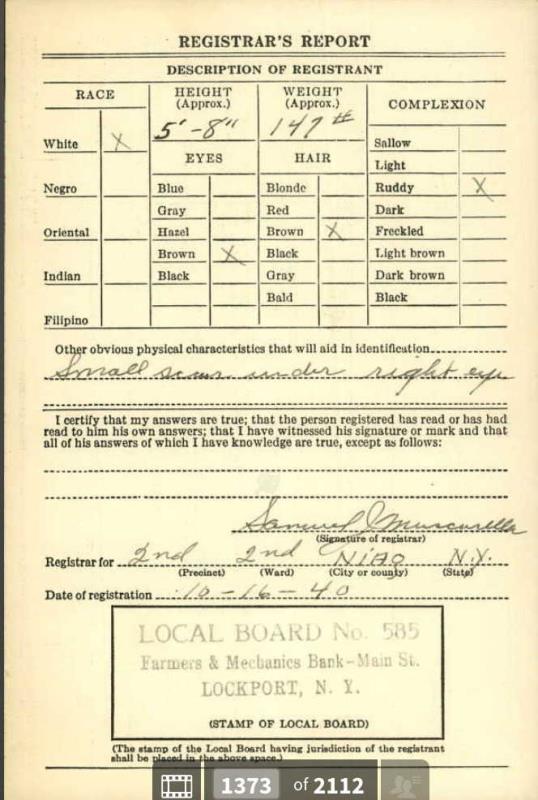 REGISTRAR'S REPORT
DESCRIPTION OF REGISTRANT
RACE
HEIGHT
(Approx.)
WEIGHT
(Approx.)
COMPLEXION
5' - 8"
147 #
White X
EYES
HAIR
Sallow
Light
Negro
Blue
Blonde
Ruddy X
Gray
Red
Dark
Oriental
Hazel
Brown X
Freckled
Brown X
Black
Light brown
Indian
Black
Gray
Dark brown
Bald
Black
Filipino
Other obvious physical characteristics that will aid in identification
Small scar under right eye
I certify that my answers are true; that the person registered has read or has had
read to him his own answers; that I have witnessed his signature or mark and that
all of his answers of which I have knowledge are true, except as follows:
Samuel J Muscarella
(Signature of registrar)
Registrar for 2nd 2nd NIAG N.Y.
(Precinct) (Ward) (City or county) (State)
Date of registration 10-16-40
LOCAL BOARD No. 585
Farmers & Mechanics Bank-Main St.
LOCKPORT, N. Y.
(STAMP OF LOCAL BOARD)
(The stamp of the Local Board having jurisdiction of the registrant
shall be placed in the above space.)
1373 of 2112